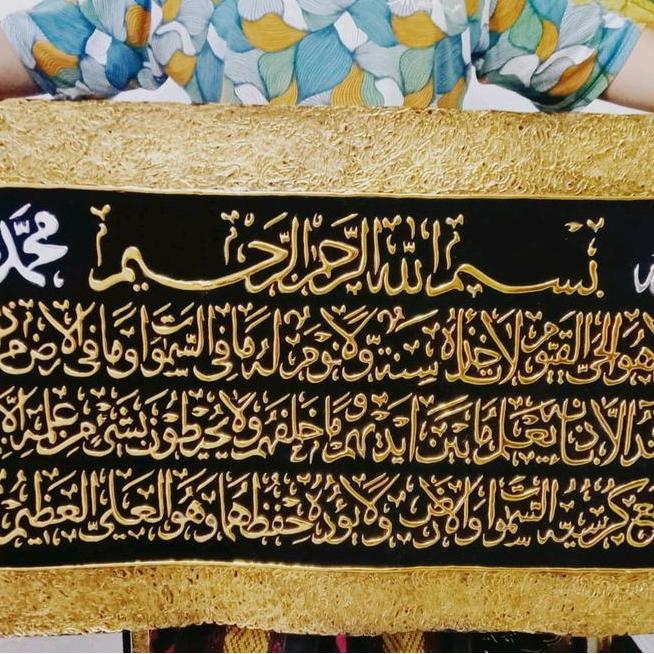 بسم الله الرحمن الرحيم
محمد
هو الحي القيوم لا تأخذه سنة ولا نوم له ما في السموات وما في الارض
الا باذنه يعلم ما بين ايديهم وما خلفهم ولا يحيطون بشيء من علمه
كرسيه السموات والارض ولا يؤده حفظهما وهو العلي العظيم